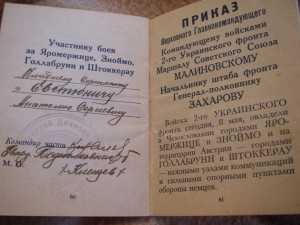 Участнику боев
за Яромержице, Зноймо,
Голлабрунн и Штоккерау
Младшему сержанту
Анатолию Сергеевичу
Командир части
М. П.
60
ПРИКАЗ
Верховного Главнокомандующего
Командующему войсками
2-го Украинского фронта
Маршалу Советского Союза
МАЛИНОВСКОМУ
Начальнику штаба фронта
Генерал-полковнику
ЗАХАРОВУ
Войска 2-го УКРАИНСКОГО
фронта сегодня, 8 мая, овладели в
Чехословакии городами ЯРО-
МЕРЖИЦЕ и ЗНОЙМО и на
территории Австрии — городами
ГОЛЛАБРУНН и ШТОККЕРАУ
— важными узлами коммуникаций
и сильными опорными пунктами
обороны немцев.
61